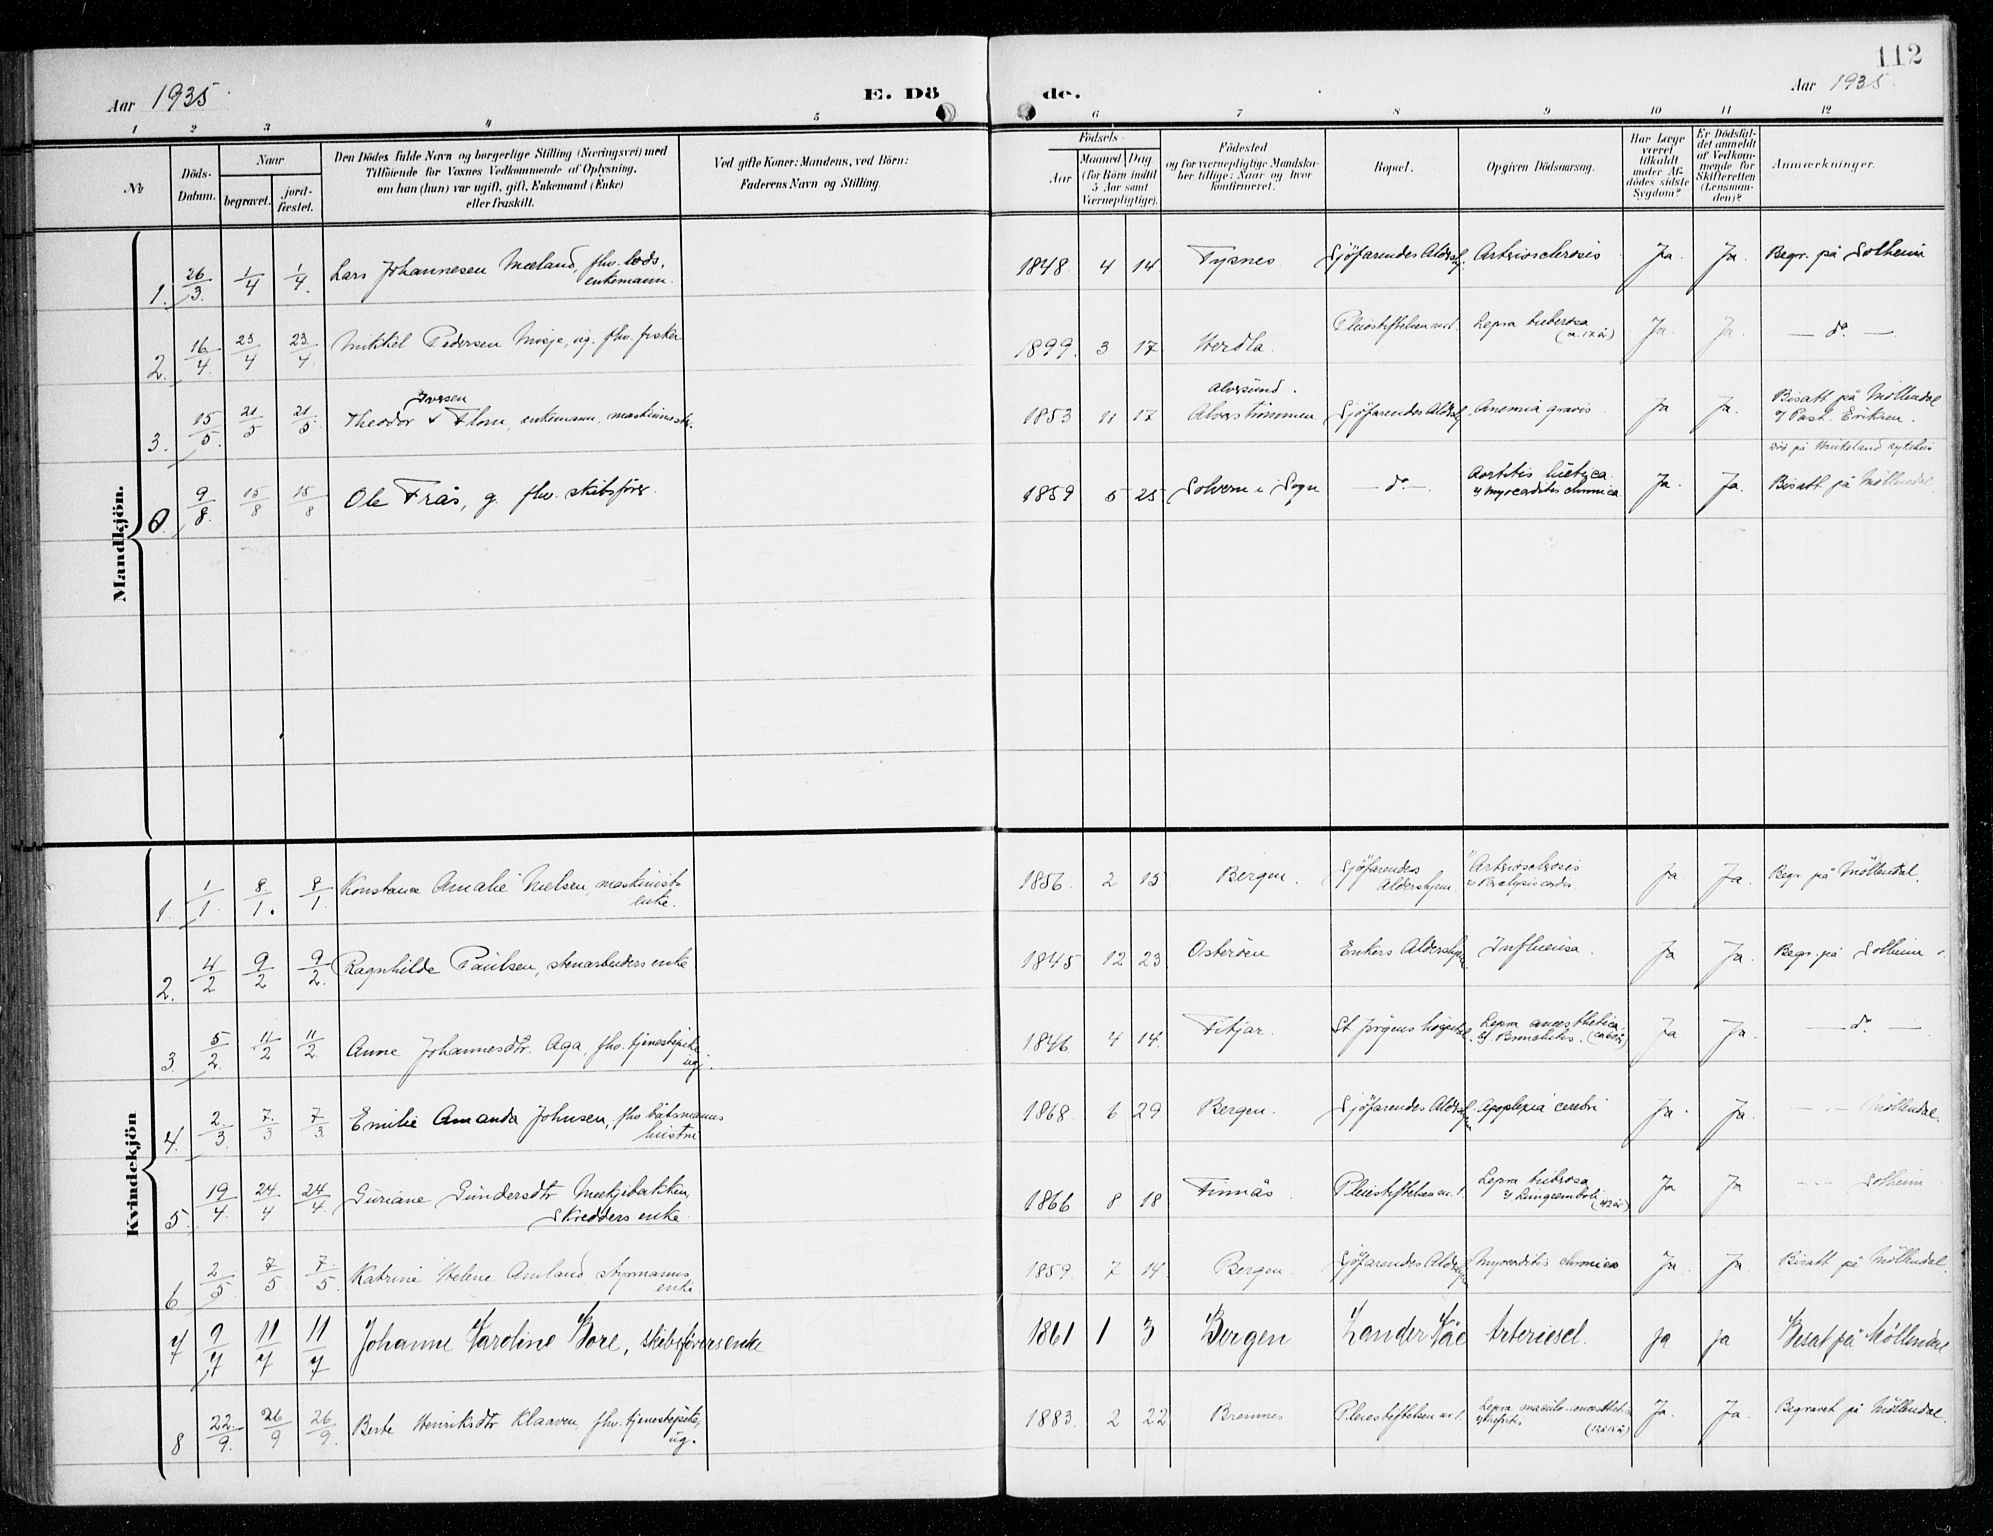 112
Aar 1935.
E. Dö
de.
Aar 1935.
1 2 3 4 5 6 7 8 9 10 11 12
No
Döds-Datum.
Naar
begravet.
jord-fæstet.
Den Dödes fulde Navn og borgerlige Stilling (Næringsvei) med
Tilföiende for Voxnes Vedkommende af Oplysning,
om han (hun) var ugift, gift, Enkemand (Enke)
eller fraskilt.
Ved gifte Koner: Mandens, ved Börn:
Faderens Navn og Stilling.
Födsels-
Aar
Maaned Dag
(for Börn indtil
5 Aar samt
Værnepligtige).
Födested
og for værnepligtige Mandska-
ber tillige: Naar og hvor
konfirmeret.
Bopæl.
Opgiven Dödsaarsag.
Har Læge
været
tilkaldt
under Af-
dödes sidste
Sygdom?
Er Dödsfal-
det anmeldt
af Vedkom-
mende for
Skifteretten
(Lensman-
den)?
Anmærkninger.
Mandkjön.
1. 26/3 1/4 1/4. Lars Johannesen Mæland, fhv. lods, enkemann. 1848. 4 14 Tysnes Sjöfarendes Aldershj. Arteriosclerosis Ja. Ja. Begr. på Solheim
2. 16/4. 23/4 23/4. Mikkel Pedersen Misje, ug. fhv. fisker 1899. 3 17 Herdla. Pleiestiftelsen nr. 1. Lepra tuberosa (ca. 17 år) Ja. Ja. — do. —
3. 15/5. 21/5 21/5. Theodor Iversen Flom, enkemann, maskinmestr. 1853 11 17 Alversund. Alverströmmen Sjöfarendes Aldershj. Anemia gravis. Ja Ja. Bisatt på Möllendal v/ Past. Eriksen.
9/8. 15/8 15/8 Ole Frås, g. fhv. skibsförer. 1859 5 25 Solvorn i Sogn — do. — Aortitis luetica v/ myocarditis chronica Ja. Ja. Bisatt på Möllendal.
Kvindekjön
1. 1/1. 8/1. 8/1. Konstance Amalie Nielsen, maskinists enke. 1856. 2 15 Bergen. Sjöfarendes Aldershjem. Arteriosclerosis Paralysis cordis Ja Ja. Begr. på Möllendal.
2. 4/2 9/2 9/2. Ragnhilde Paulsen, stenarbeiders enke 1845 12 23 Osteröen Enkers Aldershjem. Influensa. Ja Ja. Begr. på Solheim
3 5/2. 11/2 11/2. Anne Johannesdtr. Aga, fhv. tjenestepike ug. 1846 4 14. Fitjar. St Jörgens hospital. Lepra anæsthetica Bronchitis. Ja Ja. — do. —
4. 2/3. 7/3 7/3. Emilie Amanda Johnsen, fhv båtsmanns hustru 1868. 6 29 Bergen. Sjöfarendes Aldershjem Apoplexia cerebri Ja. Ja. — — Möllendal.
5. 19/4. 24/4 24/4. Guriane Gundersdtr Mækjibakken, Skredders enke. 1866 8 18 Finnås. Pleiestiftelsen nr. 1. Lepra tuberosa v/ Lungeemboli (42 år) Ja Ja — — Solheim
6. 2/5. 7/5 7/5. Katrine Helene Amland styrmanns enke 1859. 7 14 Bergen. Sjöfarendes Aldershjem Myocarditis chronica Ja. Ja. Bisatt på Möllendal.
7 9/7 11/7 11/7 Johanne Karoline Bore, skibsförers enke 1861 1 3 Bergen Zander Kåe Arteriescl. ja ja Besat på Möllendal
8 22/9. 26/9 26/9. Berte Henriksdtr Klaaven, fhv. tjenestepike, ug. 1883. 2 22 Bremnes Pleiestiftelsen nr. 1 Lepra maculo-anæsthet. Ja. Ja. Begravet på Möllendal.